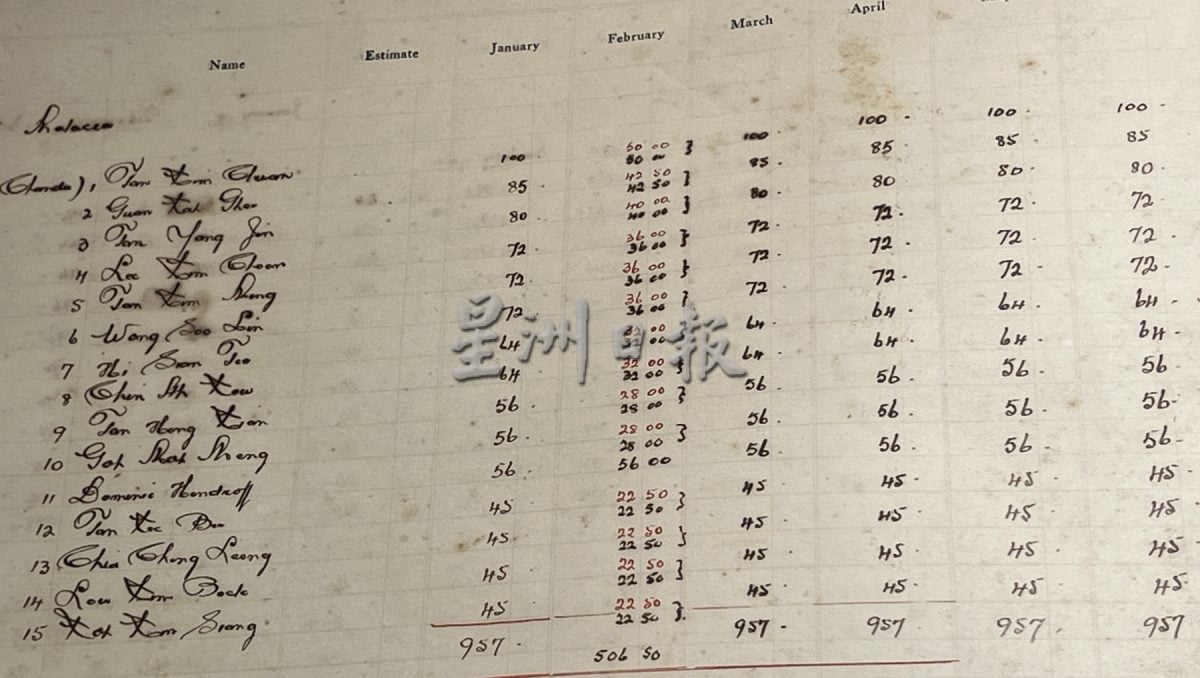 Name Estimate January February March April
Malacca
50 00
(Chanda), Tan Kim Chuan 100 50 00 } 100 100 · 100 · 100 ·
42 50
2 Guan Kah Ghee 85 · 42 50 } 85 · 85 85 · 85
40 00
3 Tan Yang Jin 80 40 00 } 80 80 80 · 80 ·
36 00
4 Lee Kim Choon 72 · 36 00 } 72 · 72 · 72 · 72
36 00
5 Tan Kim Sheng 72 · 36 00 } 72 · 72 · 72 · 72
36 00
6 Wong Soo Lin 72 36 00 } 72 · 72 · 72 · 72 ·
00
7 Hi Sian Tee 64 00 64 · 64 · 64 · 64 ·
32 00
8 Chin Kow 64 32 00 } 64 · 64 · 64 · 64 ·
28 00
9 Tan Hong Kian 56 · 28 00 } 56 56 · 56 · 56
28 00
10 Goh Sheng 56 · 28 00 } 56 · 56 · 56 · 56 ·
11 Dominic Hendroff 56 · 56 00 56 · 56 · 56 · 56 -
22 50
12 Tan Kee 45 22 50 } 45 45 · 45 · 45
22 50
13 Chia Chong Leong 45 · 22 50 } 45 · 45 · 45 · 45
22 50
14 Low Kim Bock 45 22 50 } 45 · 45 · 45 · 45 ·
22 50
15 Koh Kim Siang 45 22 50 }. 45 · 45 · 45 · 45 ·
957 · 506 50 957 · 957 957 · 957
星洲日報